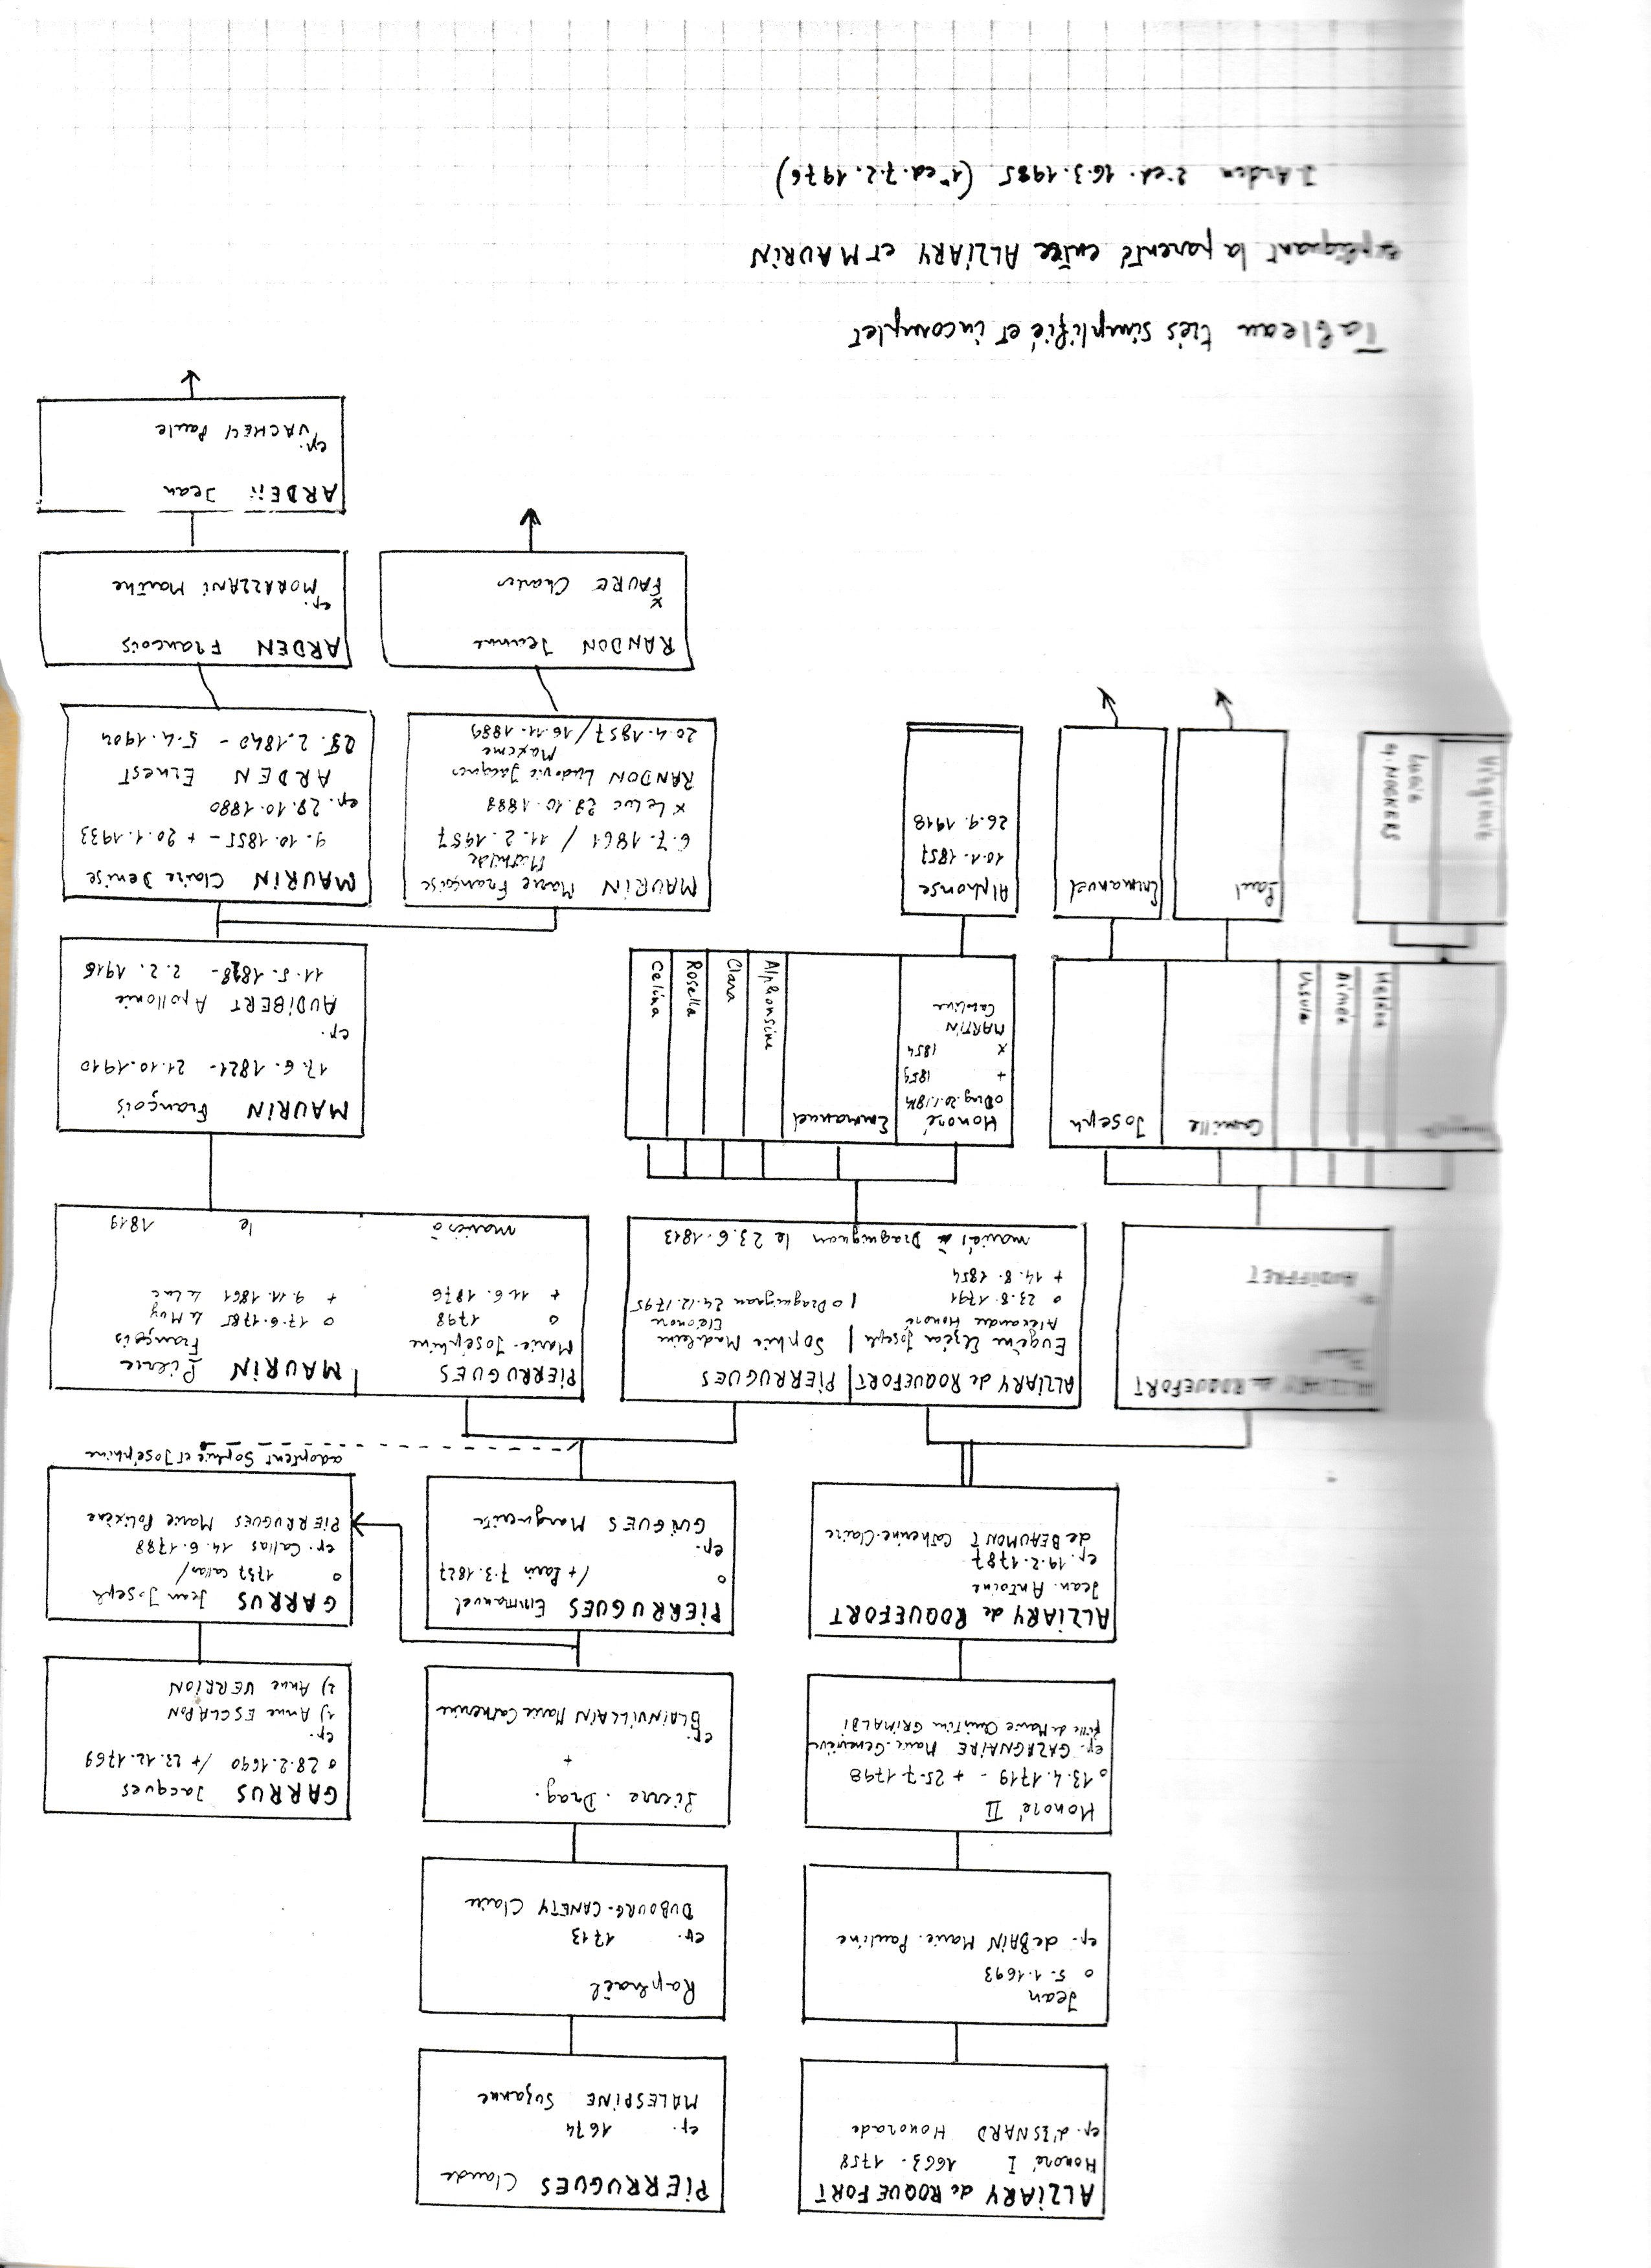 ALZIARY de ROQUEFORT
Honoré I 1663-1758
ep. d'ESNARD Honorade
PiERRUGUES Claude
ep. 1674
MALESPINE Suzanne
Jean
o 5.1.1693
ep. de BAIN Marie-Pauline
Raphaël
ep. 1713
DUBOURG-CANETY Claire
Honoré II
o 13.4.1719 - + 25-7-1798
ep. GAZAGNAIRE Marie-Geneviève
fille de Marie Christine GRIMALDI
Pierre. Drag.
+
ep.
BLAINVILLAIN Marie Catherine
GARRUS Jacques
o 28.2.1690 /+ 23.12.1769
ep.
1) Anne ESCLAPON
2) Anne VERRION
ALZIARY de ROQUEFORT
Jean. Antoine
ep. 19.2.1787
de BEAUMONT Catherine-Claire
PiERRUGUES Emmanuel
o /+ Paris 7.3.1827
ep.
GUIGUES Marguerite
GARRUS Jean Joseph
o 1737 Callas/
ep. Callas 14.6.1788
PiERRUGUES Marie Polixène
adoptent Sophie et Joséphine
ALZIARY de ROQUEFORT
Paul
AUDIFFRET
ALZIARY de ROQUEFORT
Eugène Elzéar Joseph
Alexandre Honoré
o 23.8.1791
+ 14.8.1854
PIERRUGUES
Sophie Madeleine
Eléonore
o Draguignan 24.12.1795
mariés à Draguignan le 23.6.1813
PiERRUGUES
Marie-Joséphine
o 1798
+ 11.6.1876
MAURiN Pierre
François
o 17.6.1785 Le Muy
+ 9.11.1861 Le Luc
mariés à le 1819
Hélène
Aimée
Ursule
Camille
Joseph
Honoré
o Drag. 20.1.1814
+ 1859
x 1854
MARTIN
Caroline
Emmanuel
Alphonsine
Clara
Rosella
Celina
MAURiN François
17.6.1821- 21.10.1910
ep.
AUDIBERT Apollonie
11.5.1828- 2.2.1916
Virginie
Lucie
ep. NOCKERS
Paul
Emmanuel
Alphonse
10.1.1857
26.9.1918
MAURiN Marie Françoise
Mathilde
6.7.1861 / 11.2.1957
x Le Luc 29.10.1888
RANDON Ludovic Jacques
Maxime
20.4.1857/16.11.1889
MAURiN Claire Denise
9.10.1855- + 20.1.1933
ep. 28.10.1880
ARDEN Ernest
25.2.1840 - 5.4.1904
RANDON Jeanne
x
FAURE Charles
ARDEN François
ep.
MORAZZANI Marthe
ARDEN Jean
ep.
VACHER Paule
Tableau très simplifié et incomplet
expliquant la parenté entre ALZIARY et MAURIN
J. Arden 2e ed. 16.3.1985 (1e ed. 7.2.1976)